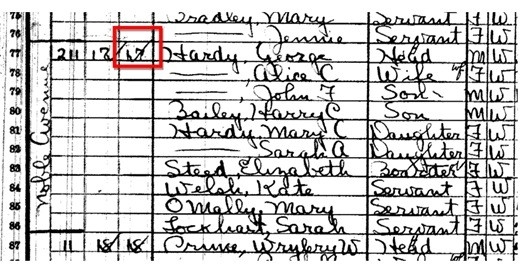 75 Bradley, Mary Servant F W
76 —— Jennie Servant F W
77 211 17 17 Hardy, George Head M W
78 ——, Alice C Wife F W
79 ——, John F Son M W
80 Bailey, Harry C Son M W
81 Hardy, Mary C Daughter F W
82 —— Sarah A Daughter F W
83 Steed, Elizabeth F W
84 Welsh, Kate Servant F W
85 O'Mally, Mary Servant F W
86 Lockhart, Sarah Servant F W
87 11 18 18 Head M W
Noble Avenue